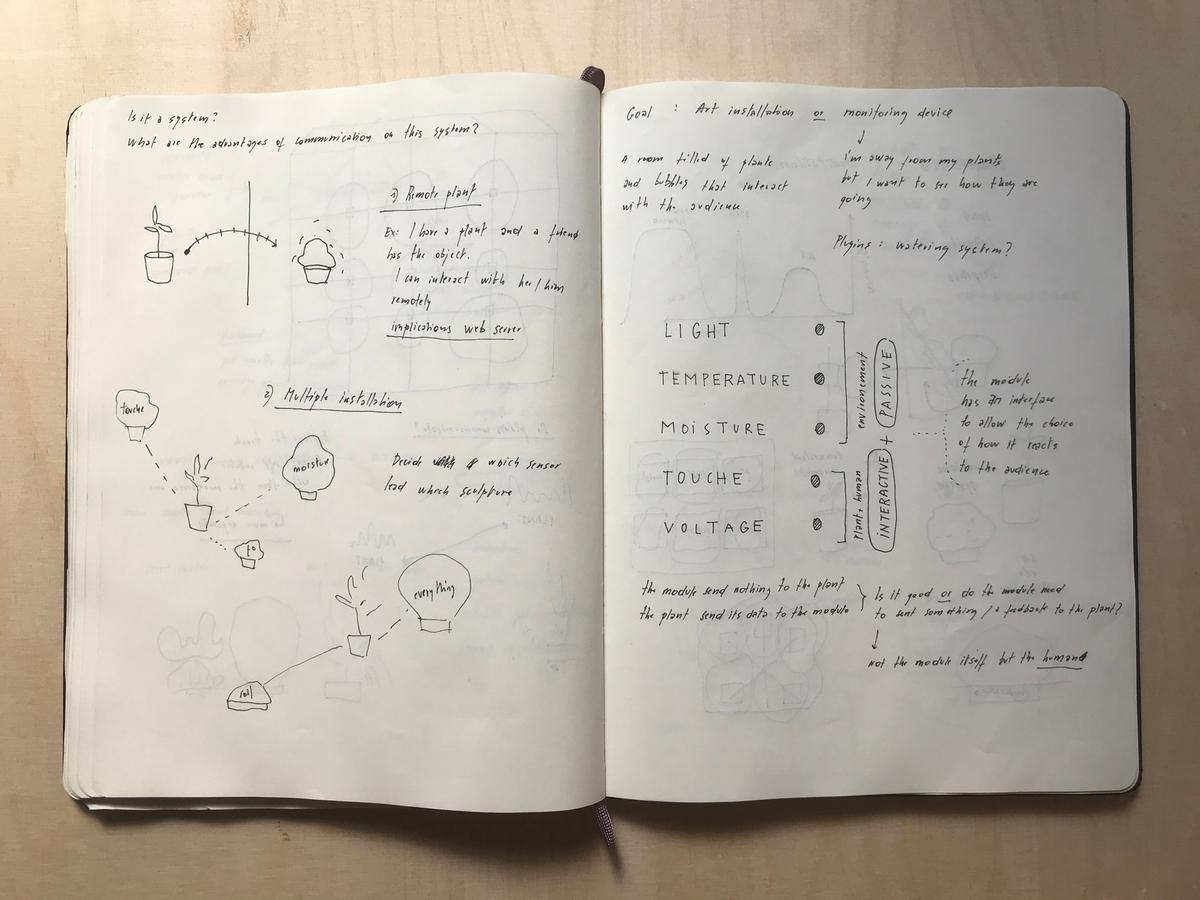 Is it a system?
What are the advantages of communication on this system?
1) Remote plant
Ex: I have a plant and a friend
has the object.
I can interact with her/him
remotely
implications web server
2) Multiple installation
touche
moisture
Decide which sensor
lead which sculpture
t°
everything
soil
Goal : Art installation or monitoring device
A room filled of plants
and bubbles that interact
with the audience
i'm away from my plants
but I want to see how they are
going
Plugins : watering system?
LIGHT
TEMPERATURE
MOISTURE
TOUCHE
VOLTAGE
environement
PASSIVE
+
plant + human
INTERACTIVE
the module
has an interface
to allow the choice
of how it reacts
to the audience
the module send nothing to the plant
the plant send its data to the module
Is it good or do the module
to sent something / a feedback to the plant?
not the module itself but the human